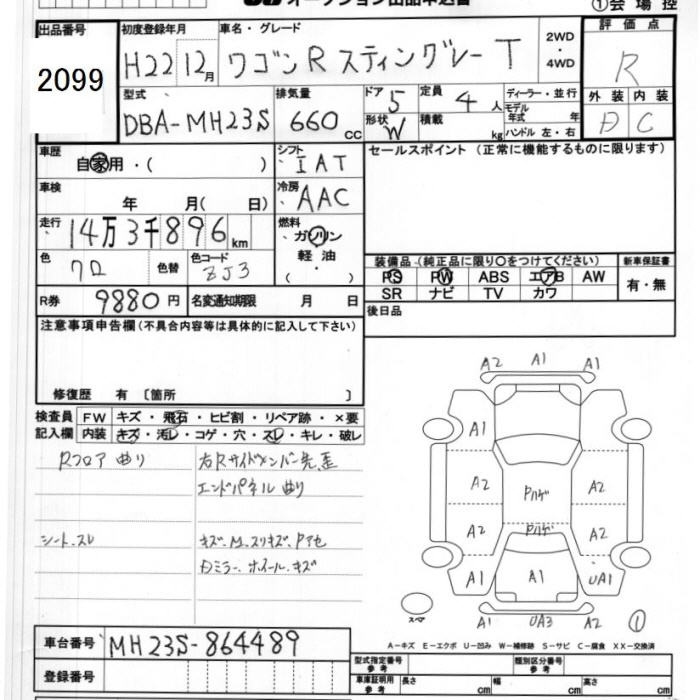 オークション出品申込書
①会場控
出品番号
2099
初度登録年月
H22 12月
車名・グレード
ワゴンR スティングレー T
2WD・4WD
評価点
R
型式
DBA-MH23S
排気量
660 cc
ドア 5
定員 4 人
形状 W
積載 kg
ディーラー・並行
モデル年式 年
ハンドル 左・右
外装 内装
D C
車歴
自家用・( )
シフト
IAT
セールスポイント (正常に機能するものに限ります)
車検
年 月( 日)
冷房
AAC
走行
14万3千896km
燃料
ガソリン
軽油
・
( )
色
クロ
色替
色コード
ZJ3
装備品 (純正品に限り○をつけてください)
新車保証書
PS PW ABS エアB AW
SR ナビ TV カワ
有・無
R券 9880円
名変通知期限 月 日
後日品
注意事項申告欄 (不具合内容等は具体的に記入して下さい)
修復歴 有 〔箇所 〕
検査員記入欄
FW キズ・飛石・ヒビ割・リペア跡・×要
内装 キズ・汚レ・コゲ・穴・スレ・キレ・破レ
Rフロア曲り
右Rサイドメンバー先歪
エンドパネル曲り
シート、スレ
キズ、M、スリキズ、Pアセ
Dミラー、ホイール、キズ
A2 A1 A1
A1
A2 Pハゲ A2
A2 Pハゲ A2
A1 A1 UA1
スペア
A1 UA3 A2
①
A−キズ E−エクボ U−凹み W−補修跡 S−サビ C−腐食 XX−交換済
車台番号 MH23S-864489
型式指定番号 参考
類別区分番号 参考
登録番号
車庫証明用 参考
長さ cm 幅 cm 高さ cm